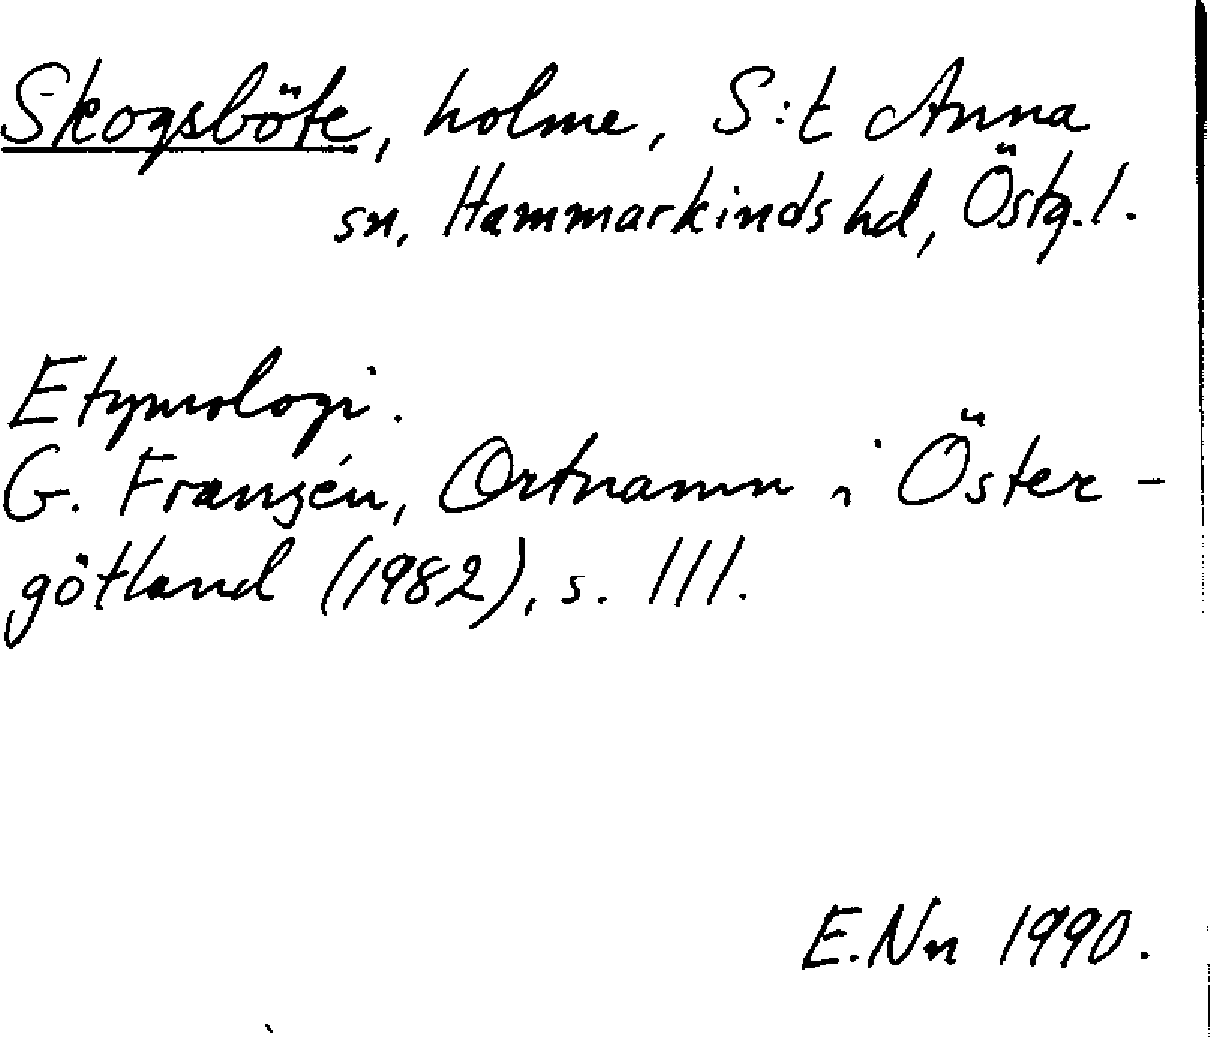 Skogsböte, holme, S:t Anna
sn, Hammarkinds hd, Östg.l.
Etymologi.
G. Franzén, Ortnamn i Öster-
götland (1982), s. 111.
E.Nn 1990.